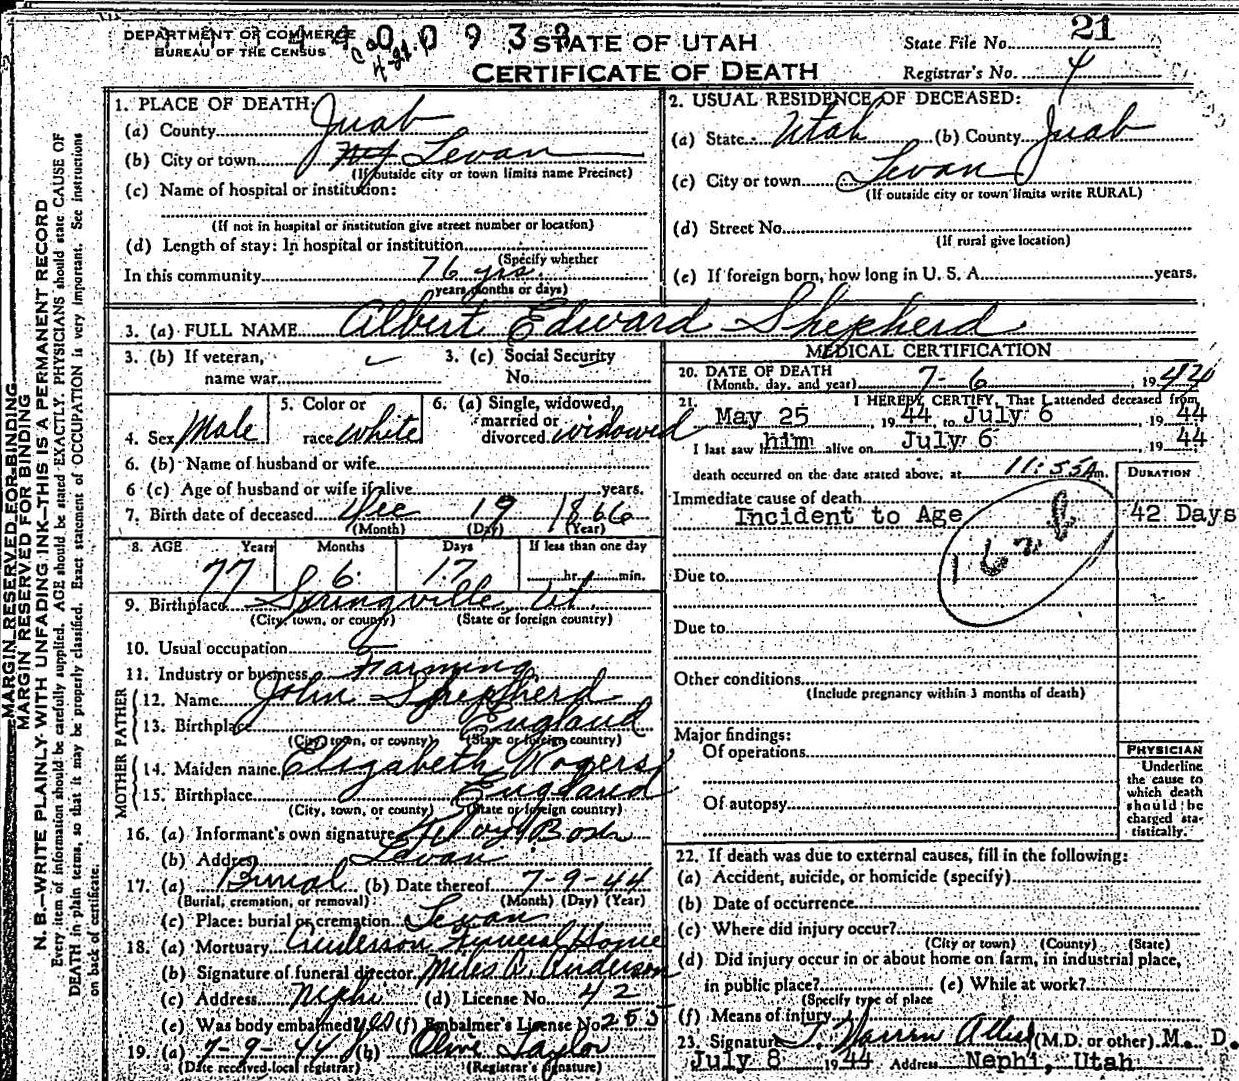 DEPARTMENT OF COMMERCE
BUREAU OF THE CENSUS
STATE OF UTAH
CERTIFICATE OF DEATH
State File No. 21
Registrar's No. 4
MARGIN RESERVED FOR BINDING
MARGIN RESERVED FOR BINDING
N. B.—WRITE PLAINLY WITH UNFADING INK—THIS IS A PERMANENT RECORD
Every item of information should be carefully supplied. AGE should be stated EXACTLY. PHYSICIANS should state CAUSE OF
DEATH in plain terms, so that it may be properly classified. Exact statement of OCCUPATION is very important. See instructions
on back of certificate.
1. PLACE OF DEATH:
(a) County Juab
(b) City or town Levan
(If outside city or town limits name Precinct)
(c) Name of hospital or institution:
(If not in hospital or institution give street number or location)
(d) Length of stay: In hospital or institution
(Specify whether
In this community 76 yrs.
years, months or days)
2. USUAL RESIDENCE OF DECEASED:
(a) State Utah (b) County Juab
(c) City or town Levan
(If outside city or town limits write RURAL)
(d) Street No.
(If rural give location)
(e) If foreign born, how long in U. S. A. years.
3. (a) FULL NAME Albert Edward Shepherd
3. (b) If veteran,
name war
3. (c) Social Security
No.
4. Sex Male
5. Color or
race White
6. (a) Single, widowed,
married or
divorced widowed
6. (b) Name of husband or wife
6 (c) Age of husband or wife if alive years.
7. Birth date of deceased Dec 19 1866
(Month) (Day) (Year)
8. AGE Years Months Days If less than one day
77 6 17 hr. min.
9. Birthplace Springville, Ut.
(City, town, or county) (State or foreign country)
10. Usual occupation
11. Industry or business Farming
FATHER
12. Name John Shepherd
13. Birthplace England
(City, town, or county) (State or foreign country)
MOTHER
14. Maiden name Elizabeth Rogers
15. Birthplace England
(City, town, or county) (State or foreign country)
16. (a) Informant's own signature
(b) Address Levan
17. (a) Burial (b) Date thereof 7-9-44
(Burial, cremation, or removal) (Month) (Day) (Year)
(c) Place: burial or cremation Levan
18. (a) Mortuary Anderson Funeral Home
(b) Signature of funeral director Miles Anderson
(c) Address Nephi (d) License No. 42
(e) Was body embalmed yes (f) Embalmer's License No. 255
19 (a) 7-9-44 (b) Olive Taylor
(Date received local registrar) (Registrar's signature)
MEDICAL CERTIFICATION
20. DATE OF DEATH
(Month, day, and year) 7-6, 1944
21. I HEREBY CERTIFY, That I attended deceased from
May 25, 1944 to July 6, 1944
I last saw him alive on July 6, 1944
death occurred on the date stated above, at 11:55 A m.
DURATION
Immediate cause of death
Incident to Age 42 Days
162 b
Due to
Due to
Other conditions
(Include pregnancy within 3 months of death)
Major findings:
Of operations
Of autopsy
PHYSICIAN
Underline
the cause to
which death
should be
charged sta-
tistically.
22. If death was due to external causes, fill in the following:
(a) Accident, suicide, or homicide (specify)
(b) Date of occurrence
(c) Where did injury occur?
(City or town) (County) (State)
(d) Did injury occur in or about home on farm, in industrial place,
in public place? (e) While at work?
(Specify type of place
(f) Means of injury
23. Signature J. Warren Allred (M.D. or other) M. D.
July 8 1944 Address Nephi, Utah